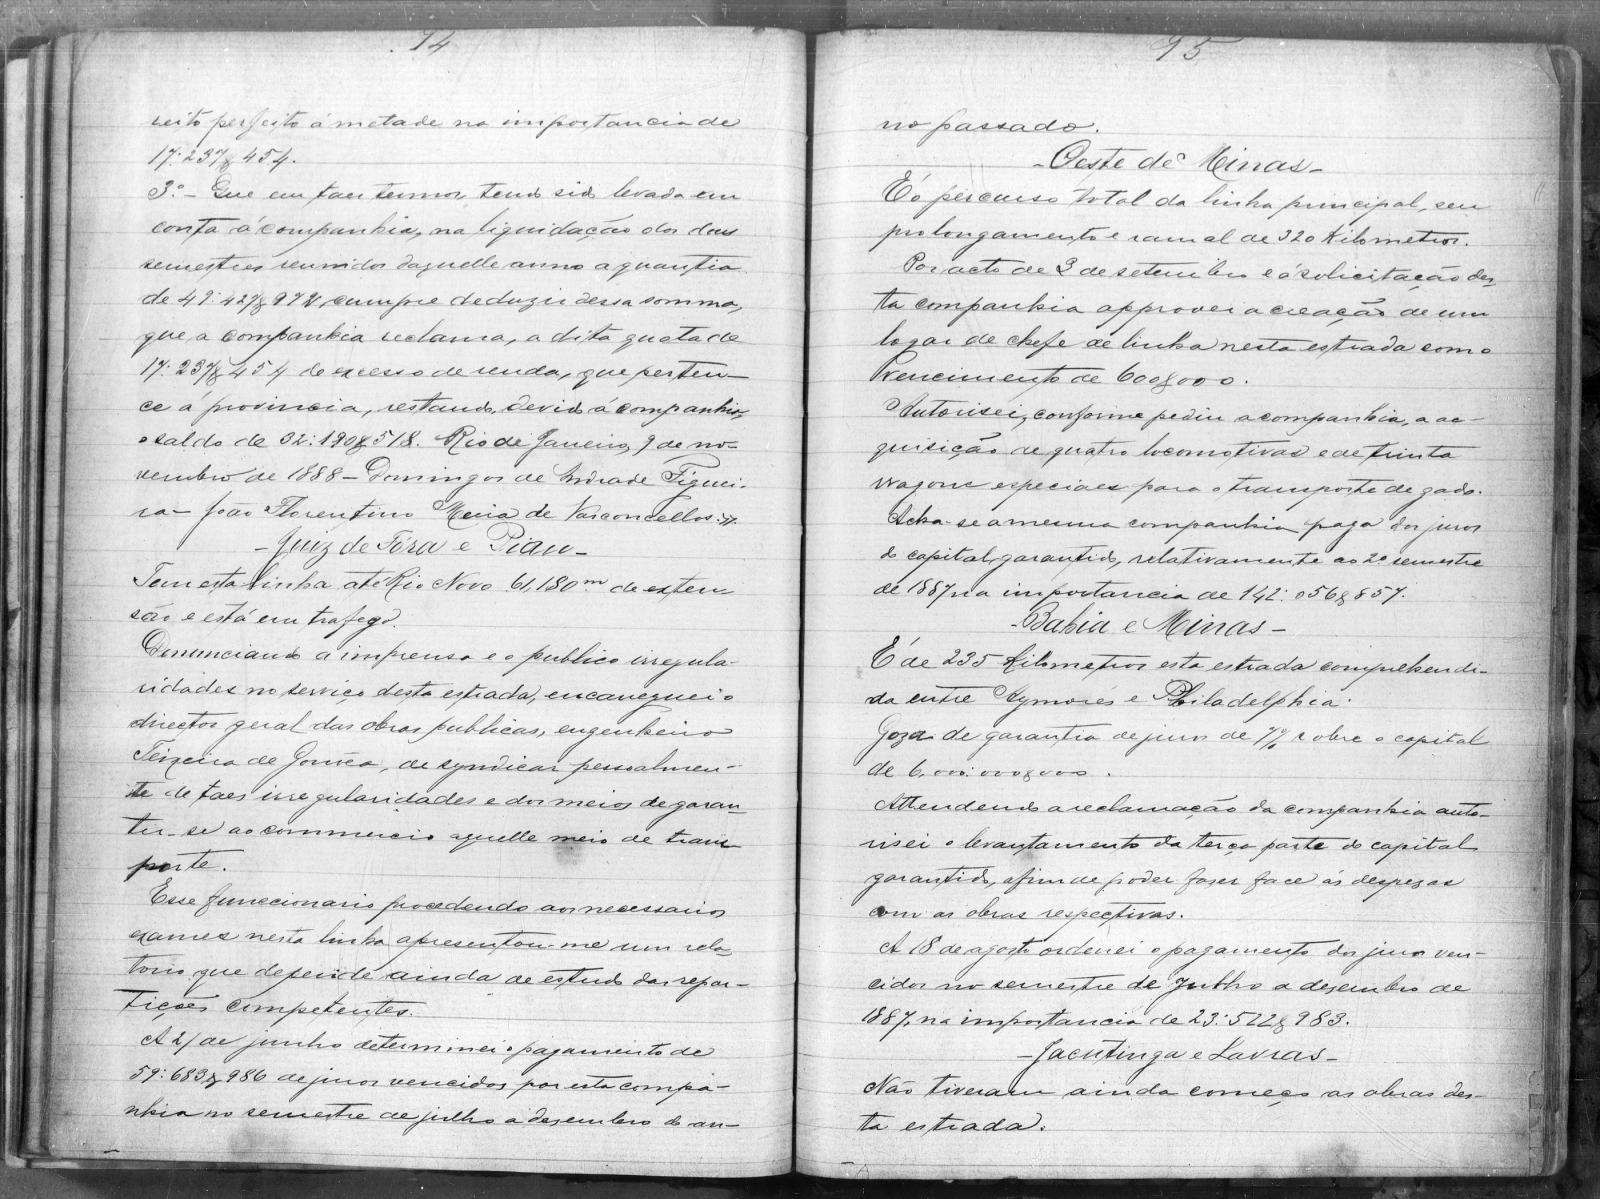 94
reito perfeito á metade na importancia de
17:237$454.
3.º - Que em taes termos, tendo sido levada em
conta á companhia, na liquidação dos dous
semestres reunidos daquelle anno a quantia
de 49:427$972, cumpre deduzir dessa somma,
que a companhia reclama, a dita quota de
17:237$454 do excesso de renda, que perten-
ce á provincia, restando, devido á companhia,
o saldo de 32:190$518. Rio de Janeiro, 9 de no-
vembro de 1888 - Domingos de Andrade Figuei-
ra - João Florentino Meira de Vasconcellos.»
- Juiz de Fóra e Piau -
Tem esta linha até Rio Novo 61,180m de exten
são e está em trafego.
Denunciando a imprensa e o publico irregula-
ridades no serviço desta estrada, encarreguei o
director geral das obras publicas, engenheiro
Teixeira de Gouvêa, de syndicar pessoalmen-
te de taes irregularidades e dos meios de garan
tir-se ao commercio aquelle meio de trans
porte.
Esse funccionario procedendo aos necessarios
exames nesta linha apresentou-me um rela
torio que depende ainda de estudo das repar-
tições competentes.
A 21 de junho determinei o pagamento de
59:683$986 de juros vencidos por esta compa-
nhia no semestre de julho a dezembro do an-
95
no passado.
- Oeste de Minas -
É o percurso total da linha principal, seu
prolongamento e ramal de 320 kilometros.
Por acto de 3 de setembro e á solicitação des-
ta companhia approvei a creação de um
logar de chefe de linha nesta estrada com o
vencimento de 600$000.
Autorisei, conforme pediu a companhia, a ac-
quisição de quatro locomotivas e de trinta
wagons especiaes para o transporte de gado.
Acha-se a mesma companhia paga dos juros
do capital garantido, relativamente ao 2º semestre
de 1887 na importancia de 142:056$857.
- Bahia e Minas -
É de 235 kilometros esta estrada comprehendi-
da entre Aymorés e Philadelphia.
Goza de garantia de juros de 7% sobre o capital
de 6.000:000$000.
Attendendo a reclamação da companhia auto-
risei o levantamento da terça parte do capital
garantido, afim de poder fazer face ás despezas
com as obras respectivas.
A 18 de agosto ordenei o pagamento dos juros ven-
cidos no semestre de Julho a dezembro de
1887, na importancia de 23:522$983.
- Jacutinga e Lavras -
Não tiveram ainda começo as obras des-
ta estrada.